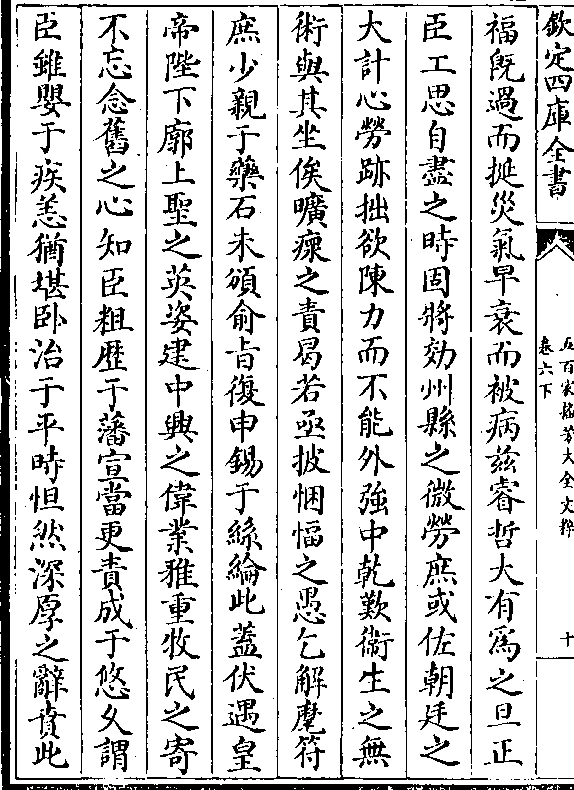 欽定四庫全書
五百家播芳大全文粹
卷六下
十
福旣過而挻災氣早衰而被病兹睿哲大有爲之旦正
臣工思自盡之時固將効州縣之微勞庶或佐朝廷之
大計心勞跡拙欲陳力而不能外強中乾歎衛生之無
術與其坐俟曠瘝之責曷若亟披悃愊之愚乞解麾符
庶少親于藥石未頒俞㫖復申錫于絲綸此蓋伏遇皇
帝陛下廓上聖之英姿建中興之偉業雅重牧民之寄
不忘念舊之心知臣粗歴于藩宣當更責成于悠久謂
臣雖嬰于疾恙猶堪卧治于平時怛然深厚之辭賁此